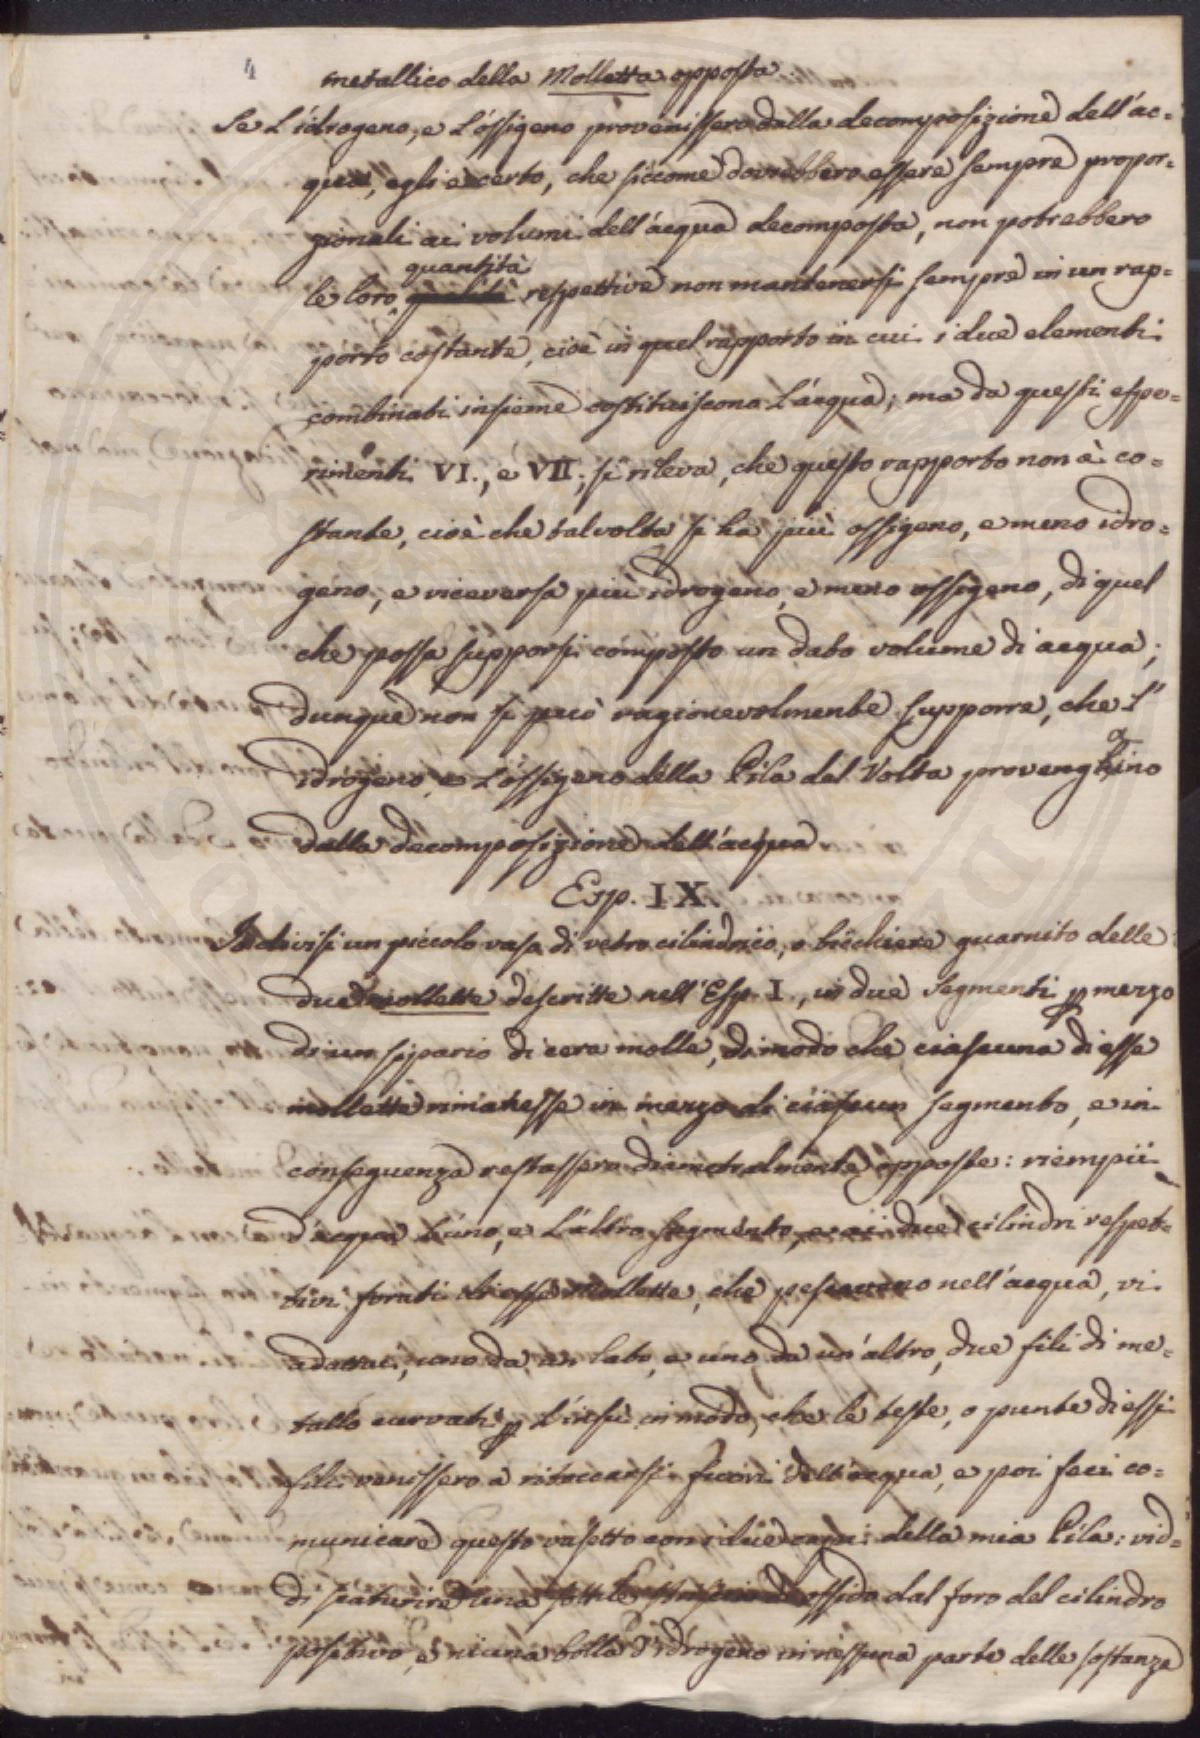 4
metallico della Molletta opposta.
Se L'idrogeno, e L'ossigeno provenissero dalla decomposizione dell'ac=
qua, egli è certo, che siccome dovrebbero essere sempre propor=
zionali ai volumi dell'acqua decomposta, non potrebbero
quantità
le loro qualità respettive non mantenersi sempre in un rap=
porto costante, cioè in quel rapporto in cui i due elementi
combinati insieme costituiscono L'acqua; ma da questi espe=
rimenti VI., e VII; si rileva, che questo rapporto non è co=
stante, cioè che talvolta si ha più ossigeno, e meno idro=
geno, e viceversa più idrogeno, e meno ossigeno, di quel
che possa supporsi composto un dato volume di acqua;
dunque non si può ragionevolmente supporre, che L'
idrogeno, e L'ossigeno della Pila del Volta provenghino
a
dalla decomposizione dell'acqua.
Esp. IX.
Io divisi un piccolo vaso di vetro cilindrico, o bicchiere guarnito delle
due mollette descritte nell'Esp. I., in due segmenti p mezzo
di un sipario di cera molle, di modo che ciascuna di esse
mollette rimanesse in mezzo di ciascun segmento, e in
conseguenza restassero diametralmente opposte: riempii
d'acqua L'uno, e L'altro segmento, e ai due cilindri respet=
tivi forati di esse mollette, che pescavano nell'acqua, vi
adattai, uno da un lato, e uno da un'altro, due fili di me=
tallo curvati p L'insù in modo, che le teste, o punte di essi
fili venissero a ritoccarsi fuori dell'acqua, e poi feci co=
municare questo vasetto con i due capi della mia Pila: vid=
di scaturire una sottile striscia di ossido dal foro del cilindro
positivo, e niuna bolla d'idrogeno in nessuna parte delle sostanze